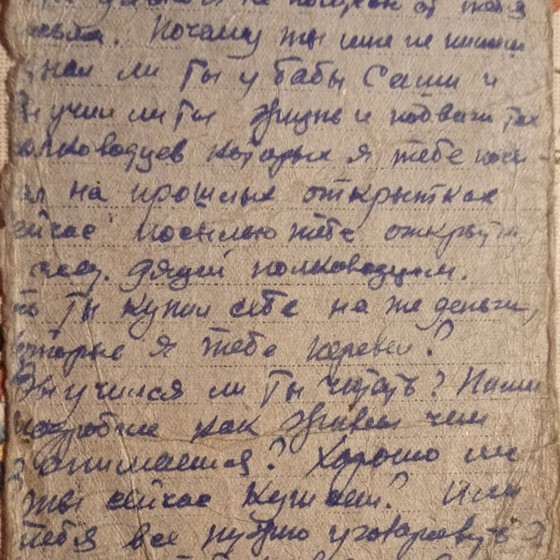 не получаю от тебя
письма. Почему ты мне не пишешь
ли Ты у бабы Саши и
учил ли Ты жизнь и подвиги тех
полководцев которых я тебе посы
на прошлых открытках
сейчас посылаю тебе открытку
след. полководцем.
Ты купил себе на те деньги,
которые я тебе перевел?
Выучился ли Ты читать? Пиши
подробнее как живешь чем
занимаешься? Хорошо ли
ты сейчас кушаешь? Или
тебя все нужно уговаревать?